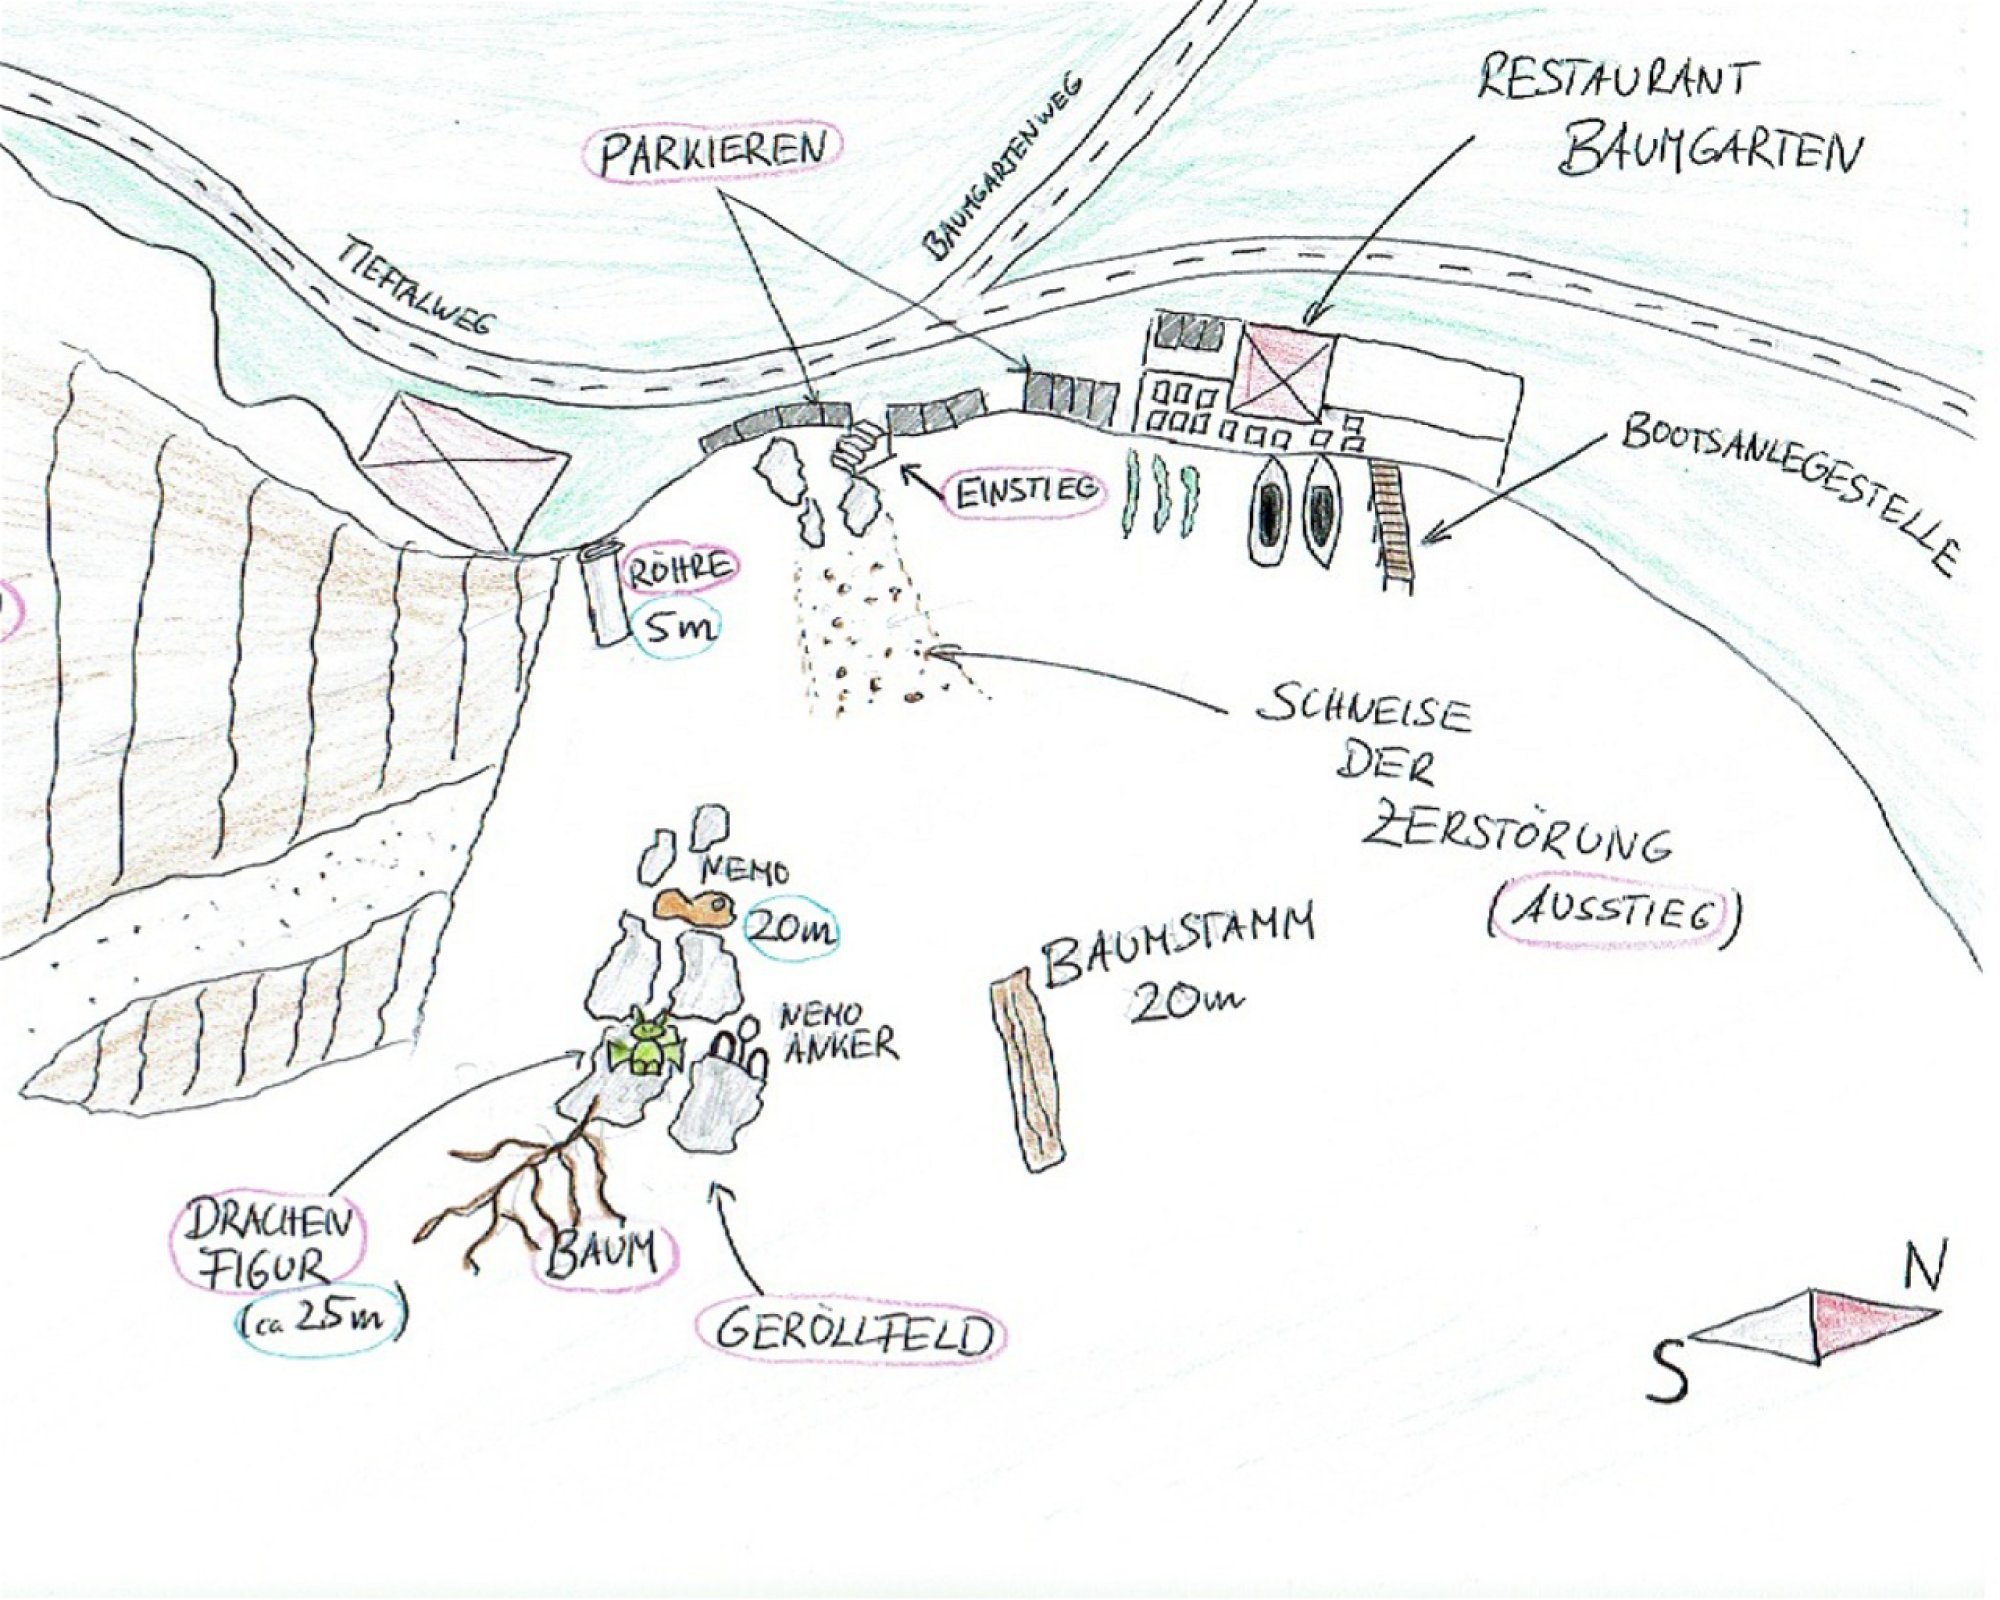 RESTAURANT
BAUMGARTEN
PARKIEREN
BAUMGARTENWEG
TIEFTALWEG
BOOTSANLEGESTELLE
EINSTIEG
RÖHRE
5m
SCHNEISE
DER
ZERSTÖRUNG
(AUSSTIEG)
NEMO
20m
BAUMSTAMM
20m
NEMO
ANKER
DRACHEN
FIGUR
(ca 25m)
BAUM
GERÖLLFELD
N
S